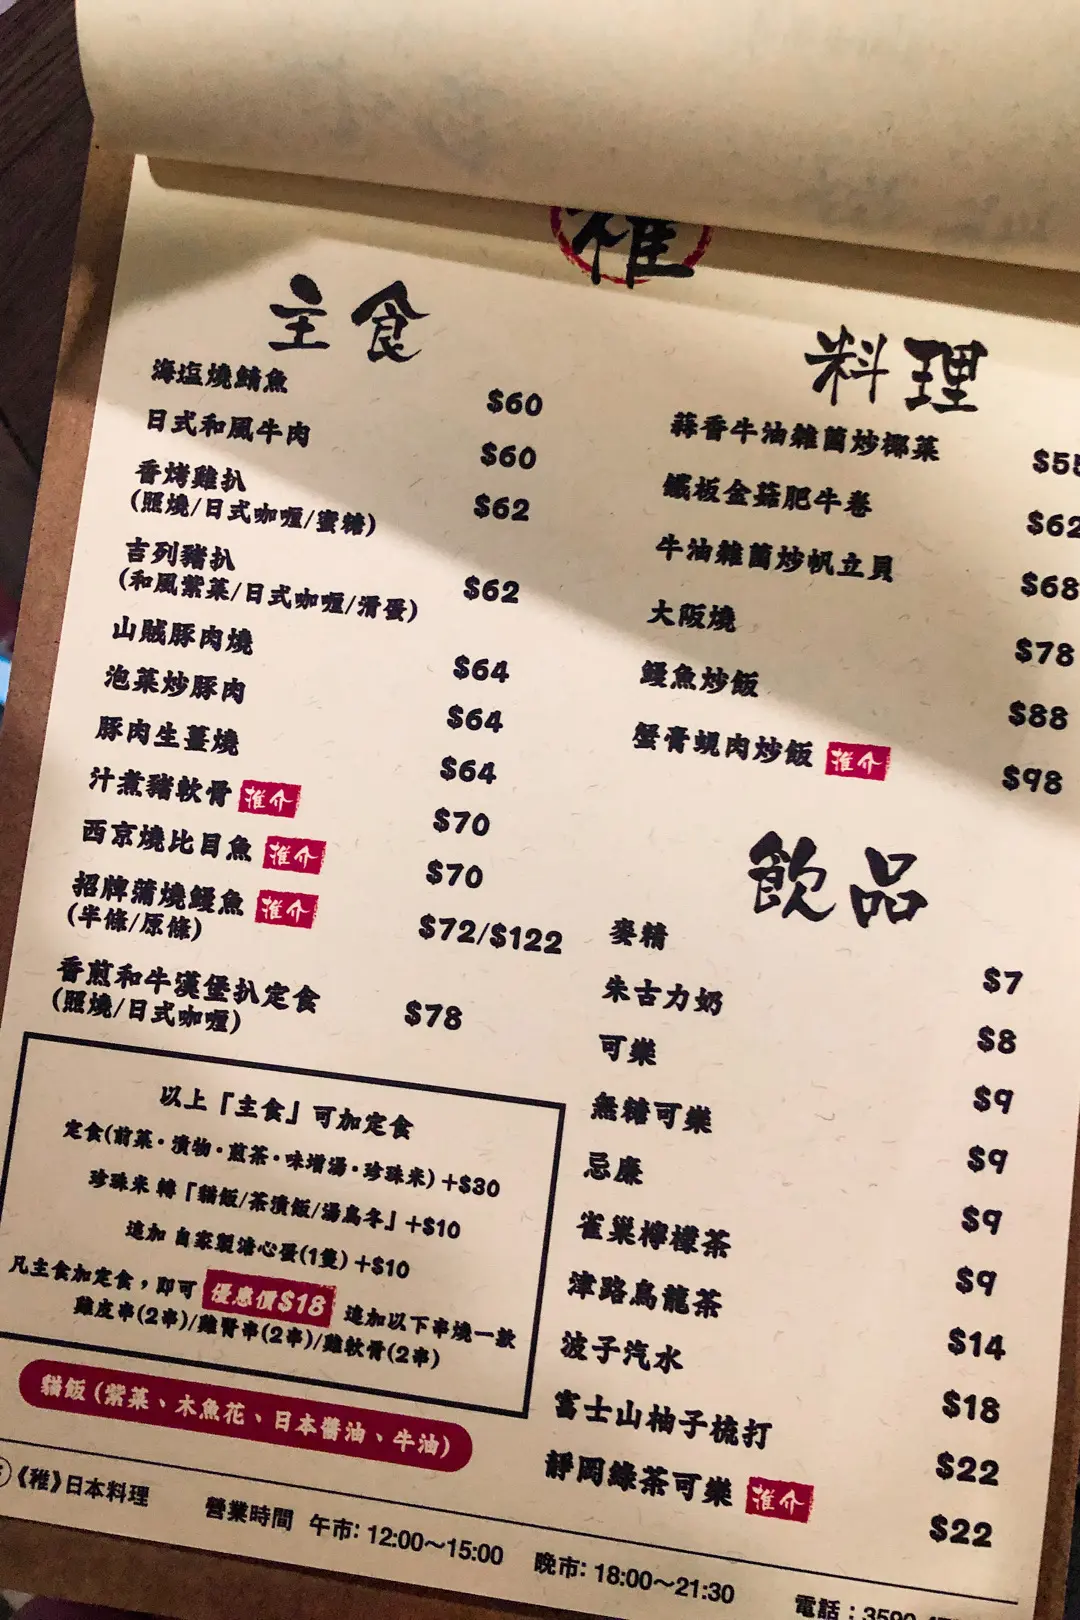 稚
主食
海塩燒鯖魚 $60
日式和風牛肉 $60
香烤雞扒 $62
(照燒/日式咖喱/蜜糖)
吉列豬扒 $62
(和風紫菜/日式咖喱/滑蛋)
山賊豚肉燒 $64
泡菜炒豚肉 $64
豚肉生薑燒 $64
汁煮豬軟骨 推介 $70
西京燒比目魚 推介 $70
招牌蒲燒鰻魚 推介 $72/$122
(半條/原條)
香煎和牛漢堡扒定食 $78
(照燒/日式咖喱)
以上「主食」可加定食
定食(前菜・漬物・煎茶・味增湯・珍珠米) +$30
珍珠米 轉「貓飯/茶漬飯/湯烏冬」+$10
追加 自家製溏心蛋(1隻) +$10
凡主食加定食，即可 優惠價$18 追加以下串燒一款
雞皮串(2串)/雞腎串(2串)/雞軟骨(2串)
貓飯 (紫菜、木魚花、日本醬油、牛油)
料理
蒜香牛油雜菌炒椰菜 $55
鐵板金菇肥牛卷 $62
牛油雜菌炒帆立貝 $68
大阪燒 $78
鰻魚炒飯 $88
蟹膏蜆肉炒飯 推介 $98
飲品
麥精 $7
朱古力奶 $8
可樂 $9
無糖可樂 $9
忌廉 $9
雀巢檸檬茶 $9
津路烏龍茶 $14
波子汽水 $18
富士山柚子梳打 $22
靜岡綠茶可樂 推介 $22
《稚》日本料理 營業時間 午市: 12:00～15:00 晚市: 18:00～21:30 電話：3590